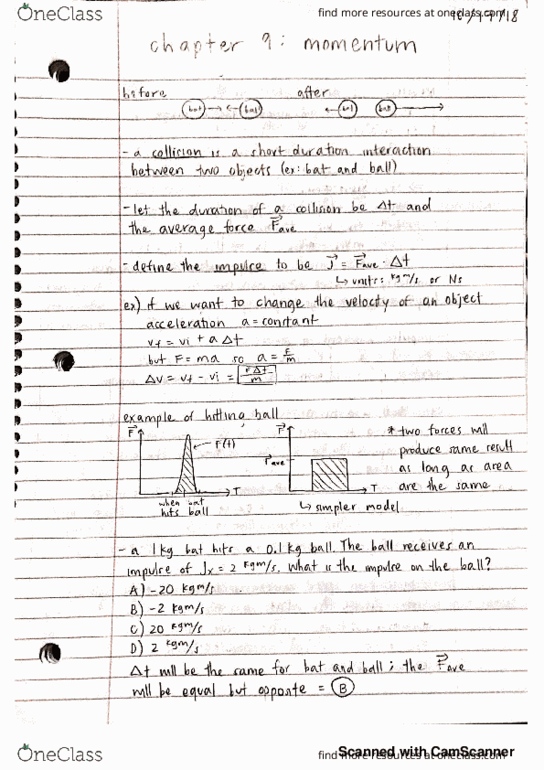 OneClass
find more resources at oneclass.com
chapter 9: momentum
before
after
bat
ball
ball
bat
- a collision is a short duration interaction
between two objects (ex: bat and ball)
- let the duration of a collision be Δt and
the average force F⃗ave
- define the impulse to be J⃗ = F⃗ave · Δt
↳ units: kgm/s or Ns
ex) if we want to change the velocity of an object
acceleration a = constant
vf = vi + a Δt
but F = ma so a = F/m
Δv = vf - vi = FΔt/m
example of hitting ball
F⃗
F(t)
T
when bat
hits ball
F⃗
Fave
T
↳ simpler model
* two forces will
produce same result
as long as area
are the same
- a 1kg bat hits a 0.1kg ball. The ball receives an
impulse of Jx = 2 kgm/s. What is the impulse on the ball?
A) -20 kgm/s
B) -2 kgm/s
C) 20 kgm/s
D) 2 kgm/s
Δt will be the same for bat and ball; the F⃗ave
will be equal but opposite = B
OneClass
find more resources at oneclass.com
Scanned with CamScanner